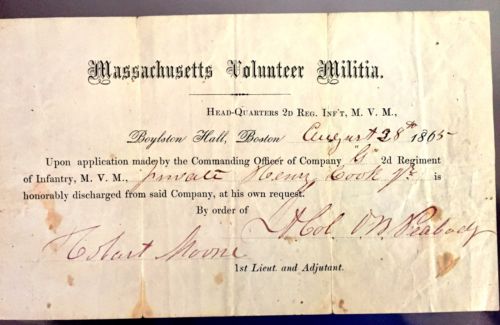 Massachusetts Volunteer Militia.
HEAD-QUARTERS 2D REG. INF'T, M. V. M.,
Boylston Hall, Boston August 28th 1865
Upon application made by the Commanding Officer of Company "G" 2d Regiment
of Infantry, M. V. M., private Henry Cook Jr. is
honorably discharged from said Company, at his own request.
By order of Lt Col O W Peabody
Hobart Moore
1st Lieut. and Adjutant.